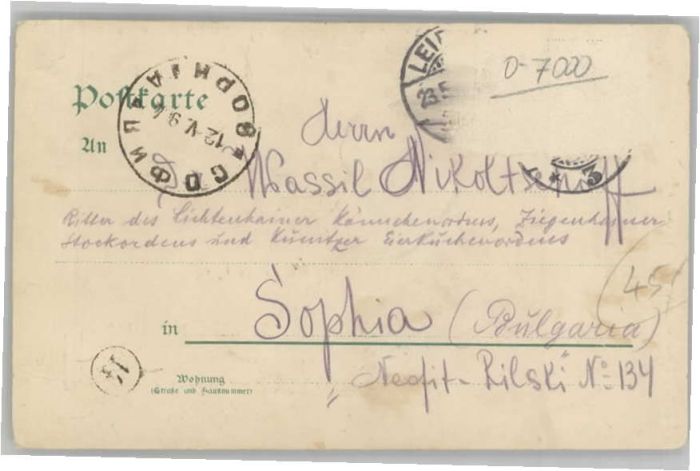 Postkarte
LEI
23.5
0-7000
СОФИЯ SOPHIA
12-V.9
An
Herrn
Wassil Nikoltschoff
* 3
Ritter des Lichtenhainer Kännchenordens, Ziegenhainer-
Stockordens und Kunitzer Eierkuchenordens
45
in
Sophia (Bulgaria)
14
Wohnung
(Straße und Hausnummer)
„Neofit-Rilski" No 134